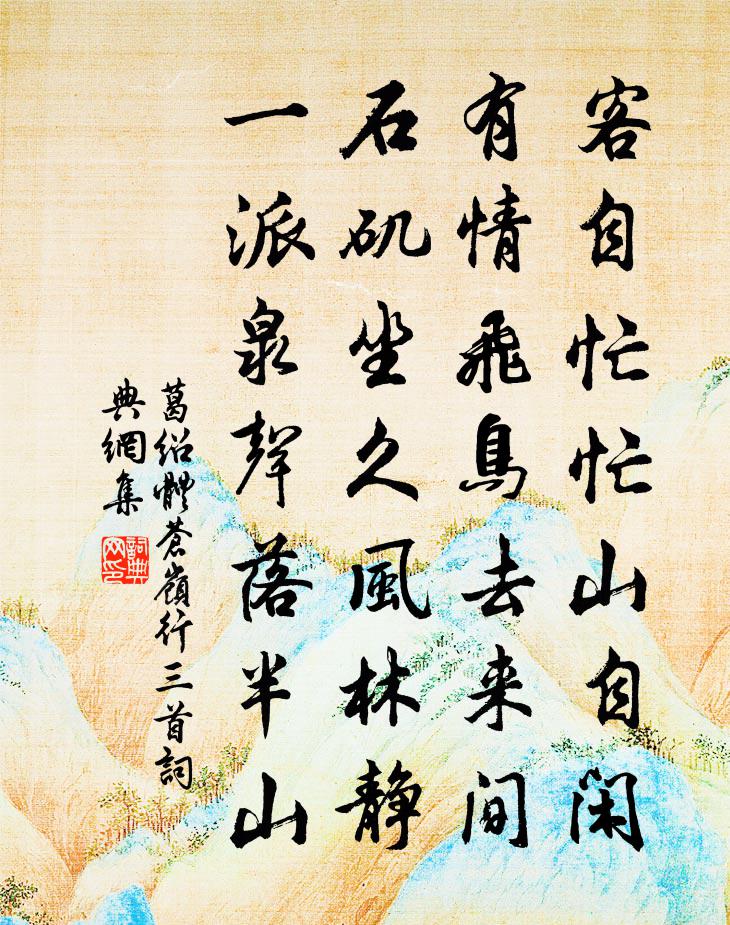 客自忙忙山自闲
有情飛鳥去来間
石矶坐久風林静
一派泉聲落半山
葛绍體蒼嶺行三首詞
典網集
詞典
网印